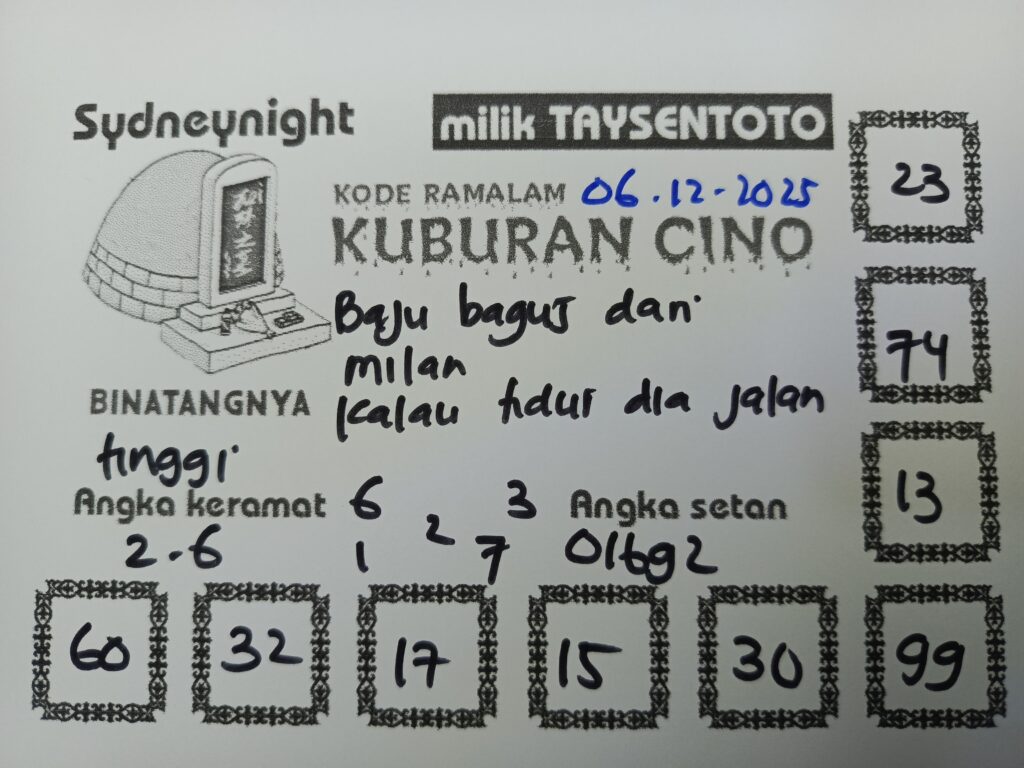 Sydneynight
milik TAYSENTOTO
KODE RAMALAM 06.12-2025
KUBURAN CINO
Baju bagus dari
milan
Kalau tidur dia jalan
BINATANGNYA
tinggi
Angka keramat
2-6
6 3
2
1 7
Angka setan
01692
23
74
13
60 32 17 15 30 99